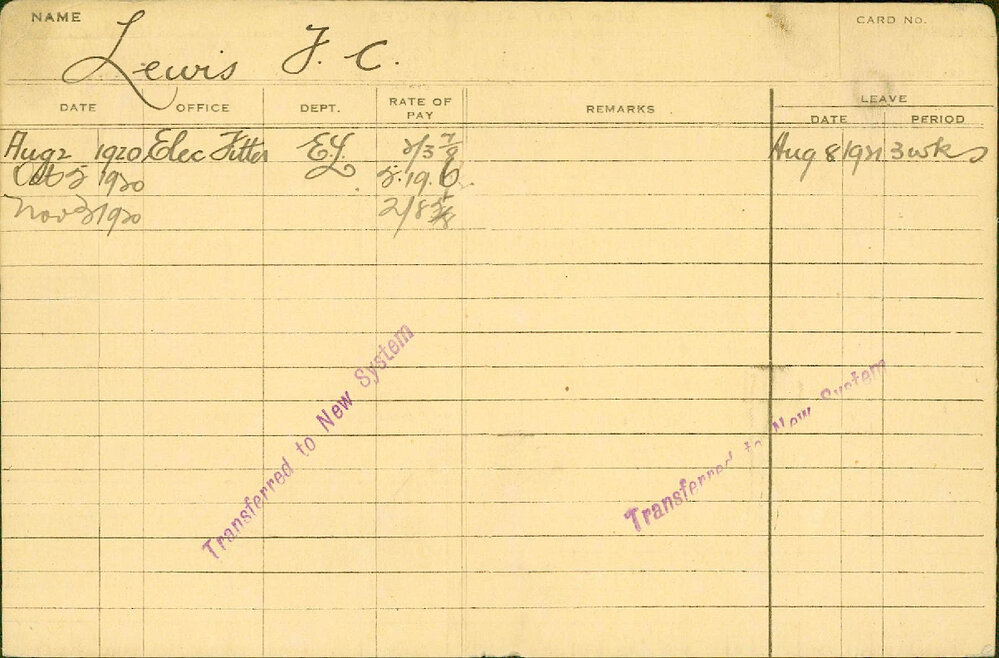 NAME
CARD NO.
Lewis F. C.
DATE OFFICE DEPT. RATE OF PAY REMARKS LEAVE
DATE PERIOD
Aug 2 1920 Elec Fitter E.L. 2/3 7/8 Aug 8 1921 3 wks
Oct 5 1920 5.19.6
Nov 3 1920 2/8
Transferred to New System
Transferred to New System